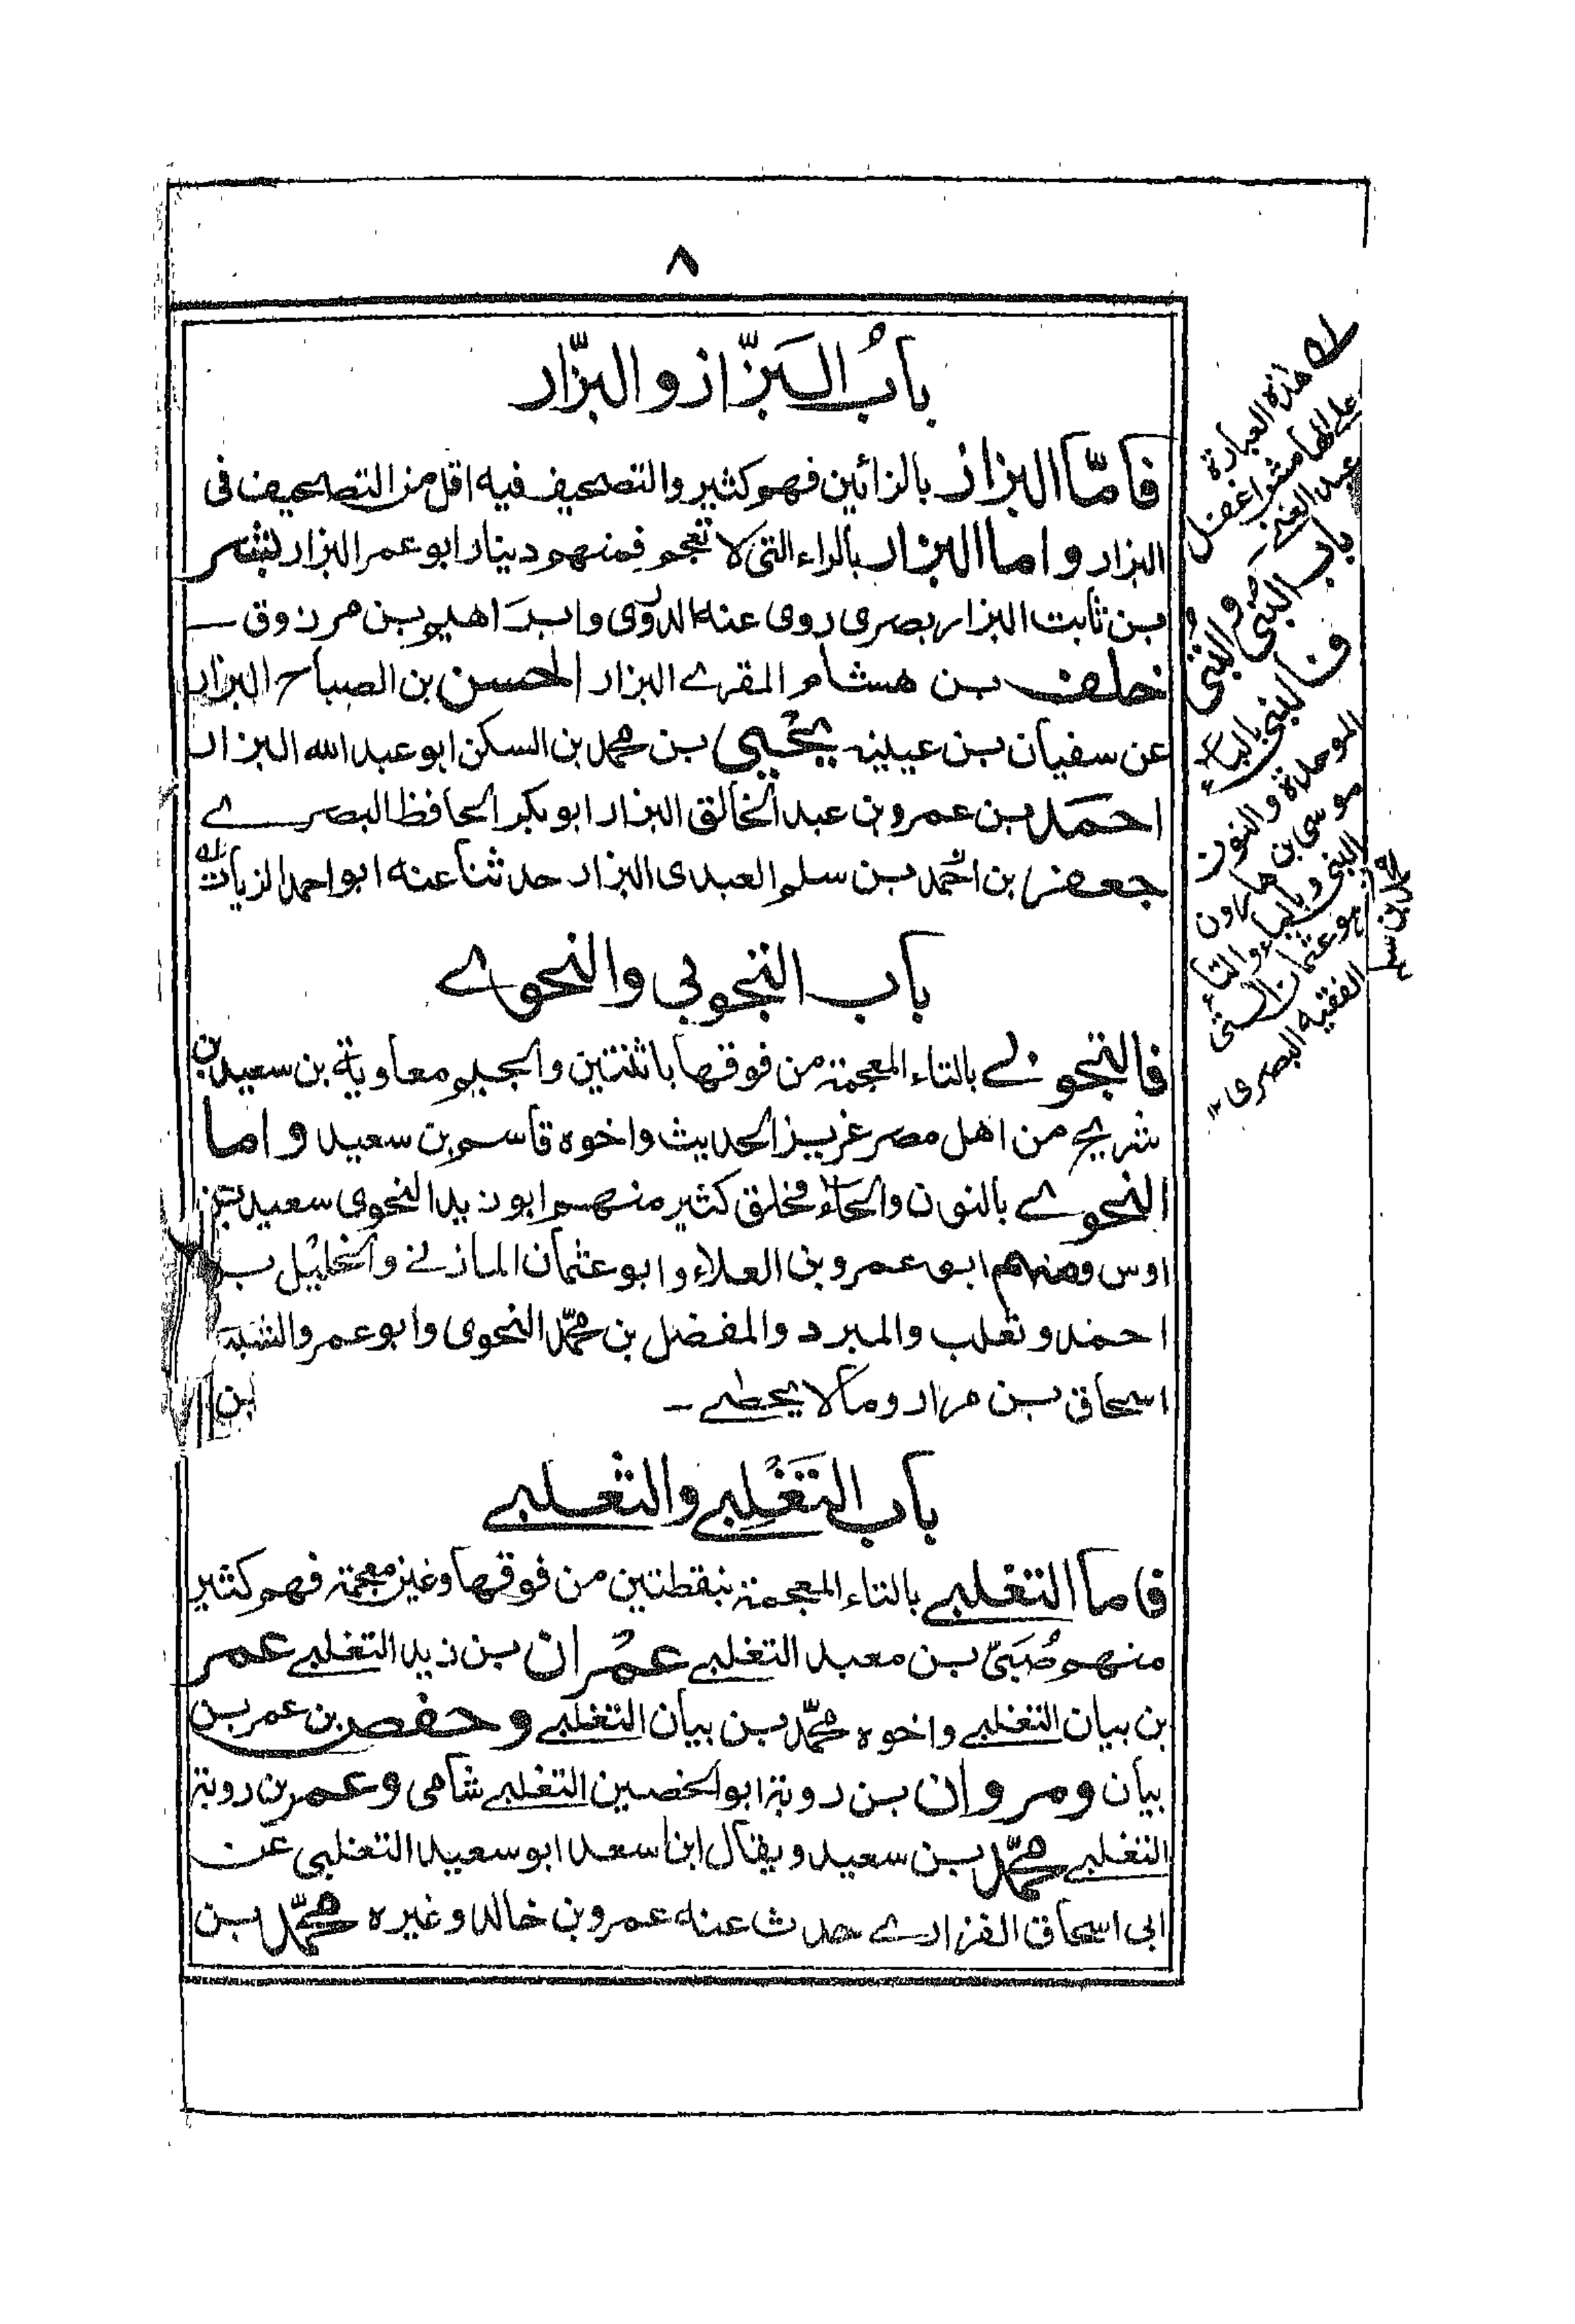 ٨
باب البزاز والبزار
فامّا البزاز بالزائين فهو كثير والتصحيف فيه اقل من التصحيف فى
البزار واما البزار بالراء التى لا تعجم فمنهم دينار ابو عمر البزار بشر
بن ثابت البزار بصرى روى عنه الدورى وابراهيم بن مرزوق
خلف بن هشام المقرے البزار الحسن بن الصباح البزار
عن سفيان بن عيينة يحيى بن محمد بن السكن ابو عبد الله البزار
احمد بن عمرو بن عبد الخالق البزار ابو بكر الحافظ البصرے
جعفر بن احمد بن سلم العبدى البزار حدثنا عنه ابو احمد الزيات
باب التجوبى والنحوے
فالتجوبے بالتاء المعجمة من فوقها باثنتين والجيم معاوية بن سعيد بن
شريح من اهل مصر غريز الحديث واخوه قاسم بن سعيد واما
النحوے بالنون والحاء فخلق كثير منهم ابو زيد النحوى سعيد بن
اوس ومنهم ابو عمرو بن العلاء وابو عثمان المازنے والخليل بن
احمد وثعلب والمبرد والمفضل بن محمّد النحوى وابو عمرو
اسحاق بن مرار وما لا يحصے
باب التَغْلِبے والثعلبے
فاما التغلبے بالتاء المعجمة بنقطتين من فوقها وغين معجمة فهم كثير
منهم صُبَىّ بن معبد التغلبے عمران بن زيد التغلبے عمر
بن بيان التغلبے واخوه محمّد بن بيان التغلبے وحفص بن عمر بن
بيان ومروان بن روبة ابو الحصين التغلبے شامى وعمر بن روبة
التغلبے محمّد بن سعيد ويقال ابن اسعد ابو سعيد التغلبى عن
ابى اسحاق الفزارے حدث عنه عمرو بن خالد وغيره محمّد بن
هذه العبارة
على الهامش
عبد الغنى
باب البنى والبتى
فالبنى بالباء
الموحدة والنون
موسى بن هارون
البنى وبالباء والتاء
هو عثمان البتى
الفقيه البصرى